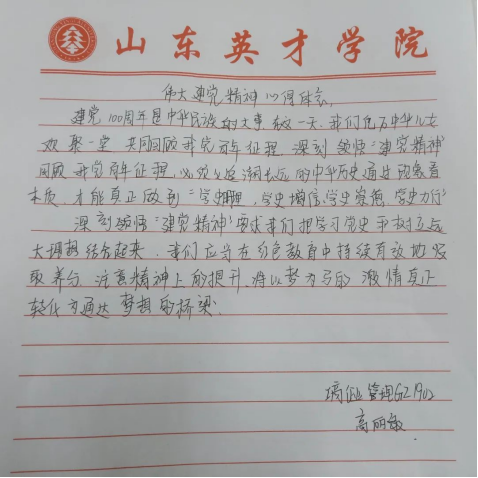 山东英才学院
伟大建党精神心得体会
建党100周年是中华民族的大事,这一天,我们亿万中华儿女
欢聚一堂 共同回顾我党百年征程 深刻领悟“建党精神”
回顾我党百年征程,必须从源远流长的中华历史通过现象看
本质,才能真正做到“学史明理,学史增信,学史崇德,学史力行”
深刻领悟“建党精神”要求我们把学习党史和树立远
大理想结合起来,我们应当在红色教育中持续有效地汲
取养分,注意精神上的提升,将以梦为马的激情真正
转化为通达梦想的桥梁.
企业管理GZ1902
高丽敏.